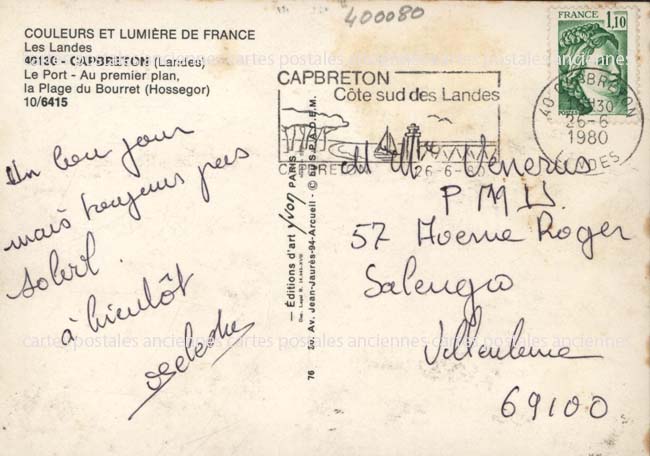 400080
COULEURS ET LUMIÈRE DE FRANCE
Les Landes
40130 - CAPBRETON (Landes)
Le Port - Au premier plan,
la Plage du Bourret (Hossegor)
10/6415
Un bon jour
mais toujours pas
soleil.
à bientôt
— Éditions d'art Yvon PARIS
76 30, Av. Jean-Jaurès-94-Arcueil - © E.U.S.P.A.D.E.M.
CAPBRETON
Côte sud des Landes
CAPBRETON
26-6-80
FRANCE
1,10
40 CAPBRETON
26-6
1980
LANDES
M Mme Venerus
P M U
57 Avenue Roger
Salengro
Villeurbanne
69100
cartes postales anciennes cartes postales anciennes cartes postales anciennes